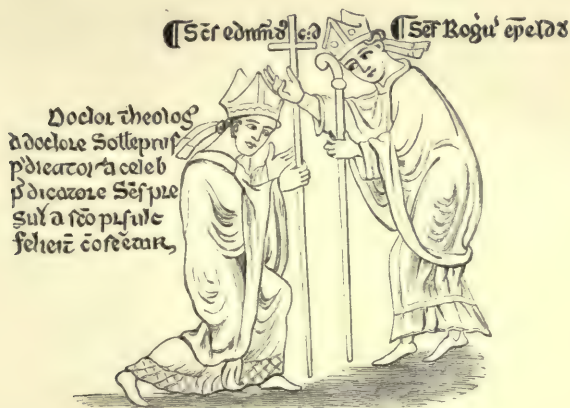 Scs edmūd9 c:d
Scs Rogu' epeld8
Doctor theolog
a doctore Sollepnis
p'dicator a celeb
p'dicatore Scs pre
Sul a sco presule
felicit cōsecratur,